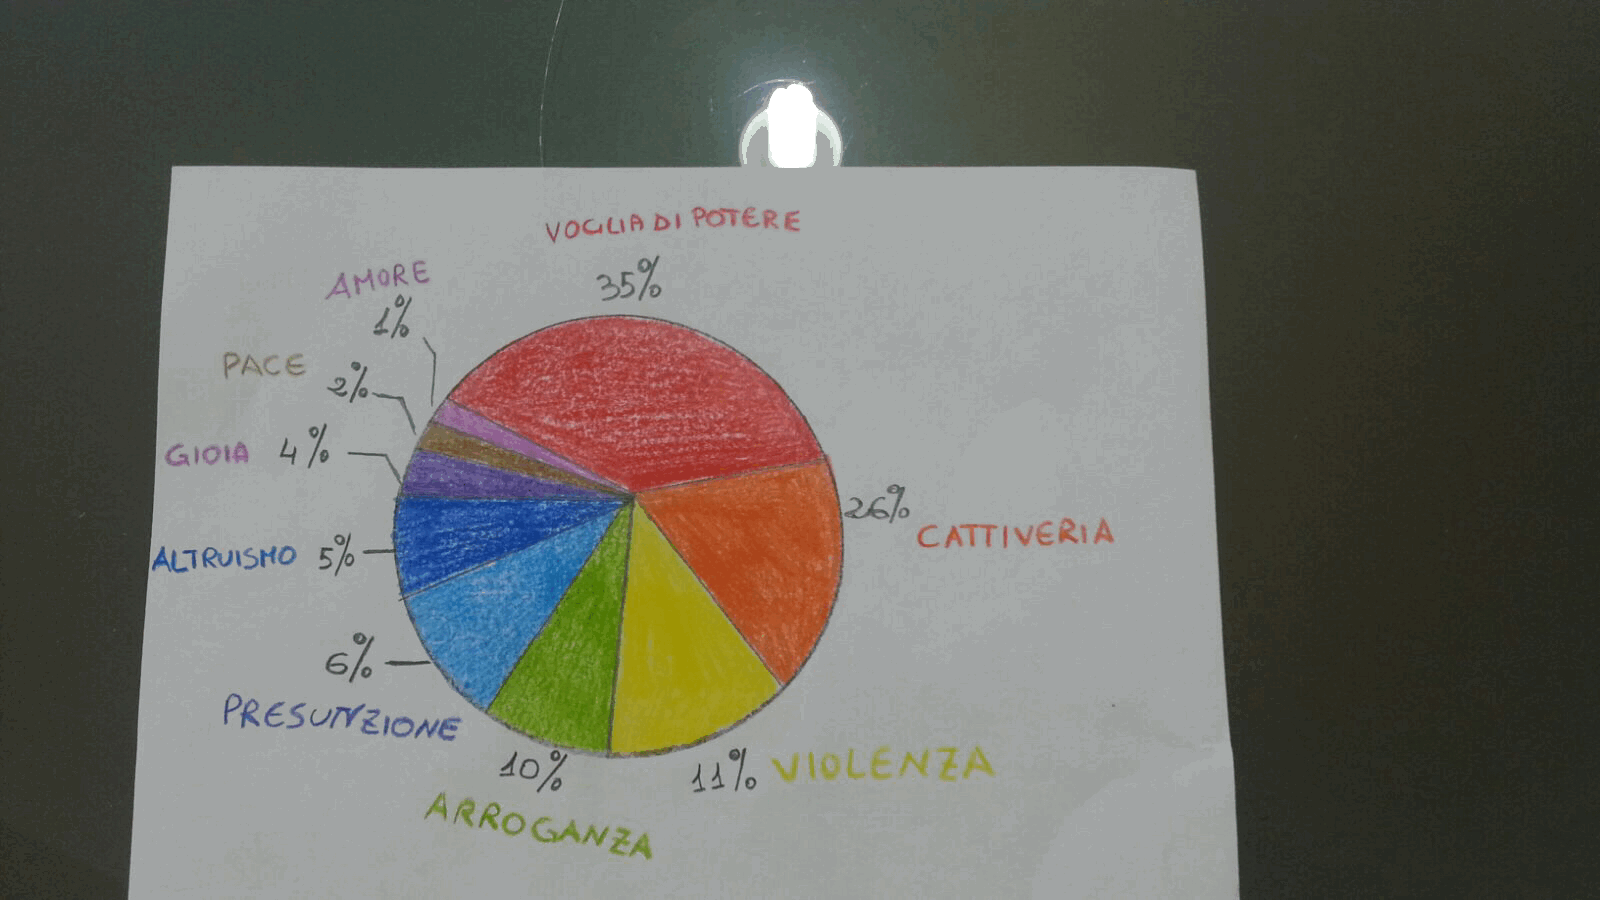 VOGLIA DI POTERE
35%
AMORE
1%
PACE
2%
GIOIA 4%
ALTRUISMO 5%
6%
PRESUNZIONE
10%
ARROGANZA
11% VIOLENZA
26%
CATTIVERIA